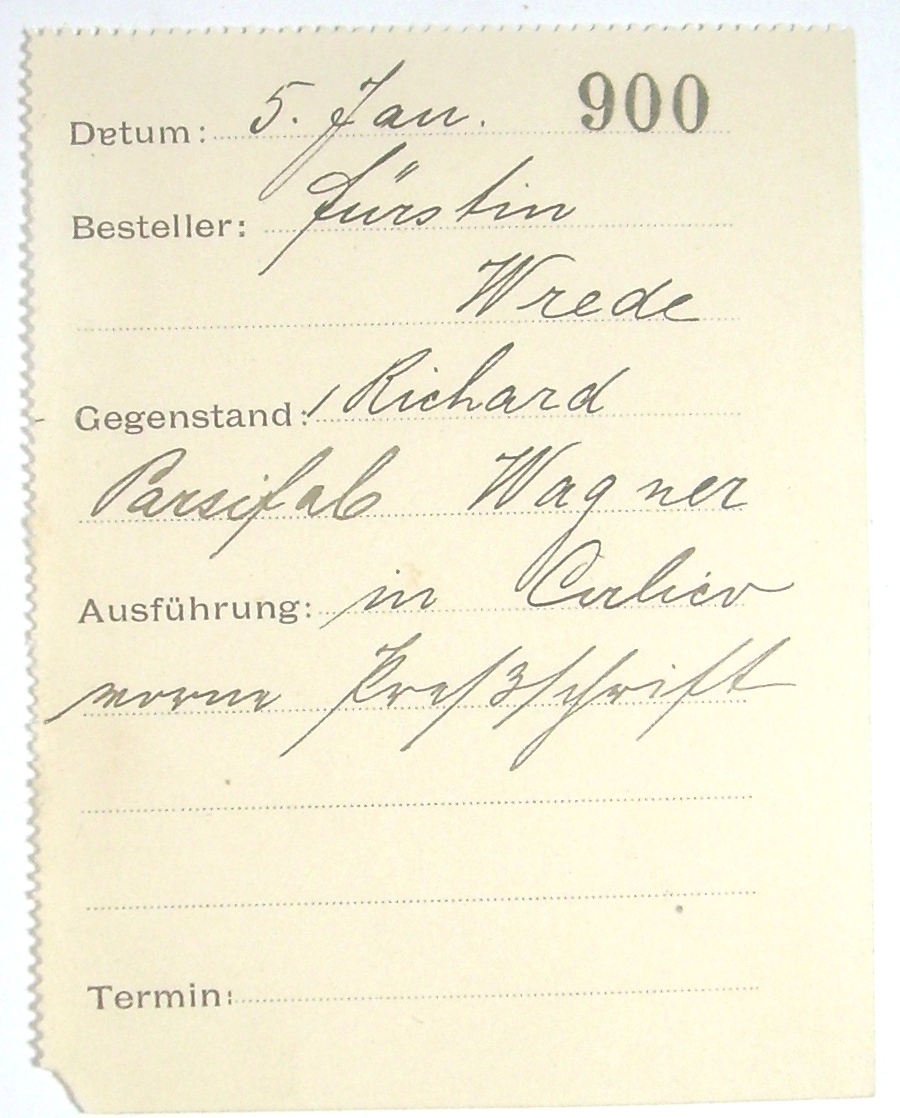 Datum: 5. Jan. 900
Besteller: Fürstin
Wrede
Gegenstand: 1 Richard
Parsifal Wagner
Ausführung: in Calico
vorne Preßschrift
Termin: